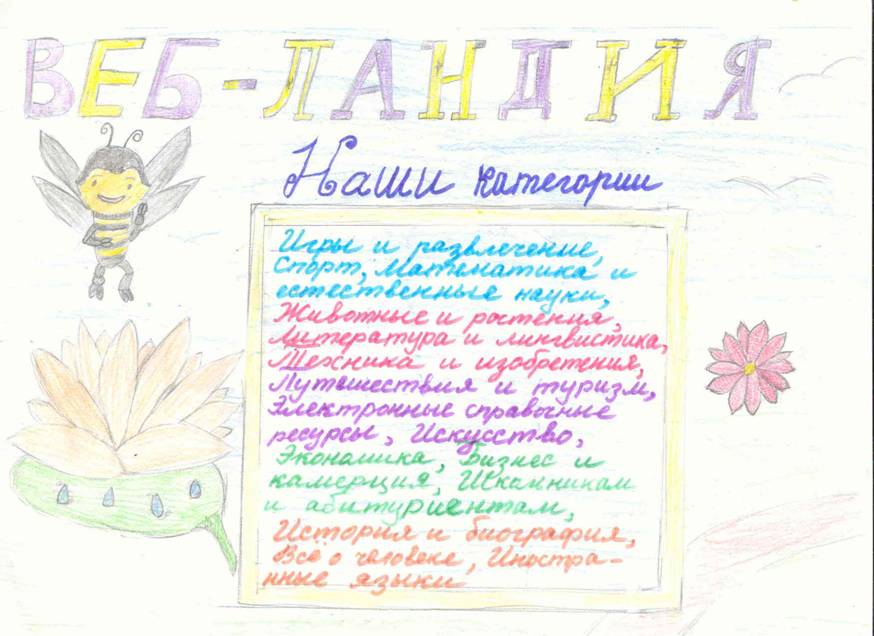 ВЕБ-ЛАНДИЯ
Наши категории
Игры и развлечение,
Спорт, Математика и
естественные науки,
Животные и растения,
Литература и лингвистика,
Техника и изобретения,
Путешествия и туризм,
Электронные справочные
ресурсы, Искусство,
Экономика, Бизнес и
камерция, Шкамникам
и абитуриентам,
История и биография,
Всё о человеке, Иностра-
нные языки